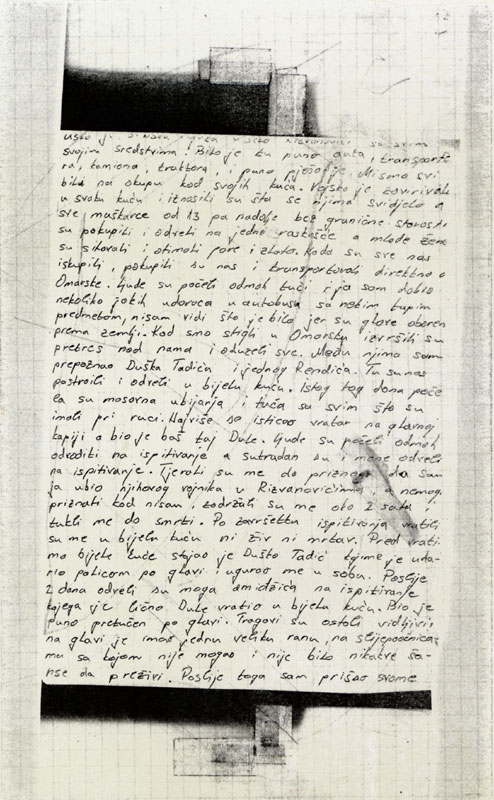 svojim sredstvima. Bilo je tu puno auta, transporte
ra, kamiona, traktora, i puno pješadije. Mi smo svi
bili na okupu kod svojih kuća. Vojska je zavirivala
u svaku kuću i iznosili su šta se njima svidjelo a
sve muškarce od 13 pa nadalje bez granične starosti
su pokupili i odveli na jedno raskršće a mlade žene
su silovali i otimali pare i zlato. Kada su sve nas
iskupili, pokupili su nas i transportovali direktno u
Omarske. Ljude su počeli odmah tući i ja sam dobio
nekoliko jakih udaraca u autobusu sa nekim tupim
predmetom, nisam vidi što je bilo jer su glave oboren
prema zemlji. Kad smo stigli u Omarsku izvršili su
pretres nad nama i oduzeli sve. Među njima sam
prepoznao Duška Tadića i jednog Rendića. Tu su nas
postrojili i odveli u bijelu kuću. Istog tog dana poče
la su masovna ubijanja i tuča sa svim što su
imali pri ruci. Najviše se isticao vratar na glavnoj
kapiji a bio je baš taj Dule. Ljude su počeli odmah
odvoditi na ispitivanje a sutradan su i mene odveli
na ispitivanje. Tjerali su me da priznam da sam
ja ubio njihovog vojnika u Rizvanovićima, a nemog.
priznati kad nisam, zadržali su me oko 2 sata i
tukli me do smrti. Po završetku ispitivanja vratili
su me u bijelu kuću ni živ ni mrtav. Pred vrati-
ma bijele kuće stajao je Duško Tadić kojime je uda-
rio palicom po glavi i ugurao me u sobu. Poslije
2 dana odveli su moga amidžića na ispitivanje
kojega je lično Dule vratio u bijelu kuću. Bio je
puno pretučen po glavi. Tragovi su ostali vidljivi i
na glavi je imao jednu veliku ranu, na sljepoočnica
ma sa kojom nije mogao i nije bilo nikakve ša-
nse da preživi. Poslije toga sam prišao svome